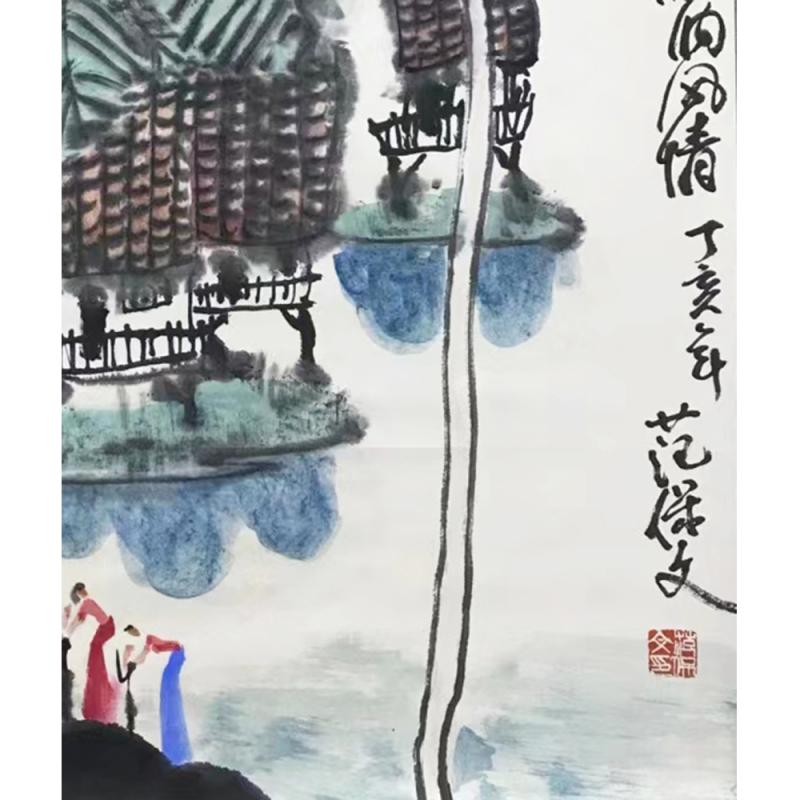 纳风情 丁亥年 范保文
范保文印